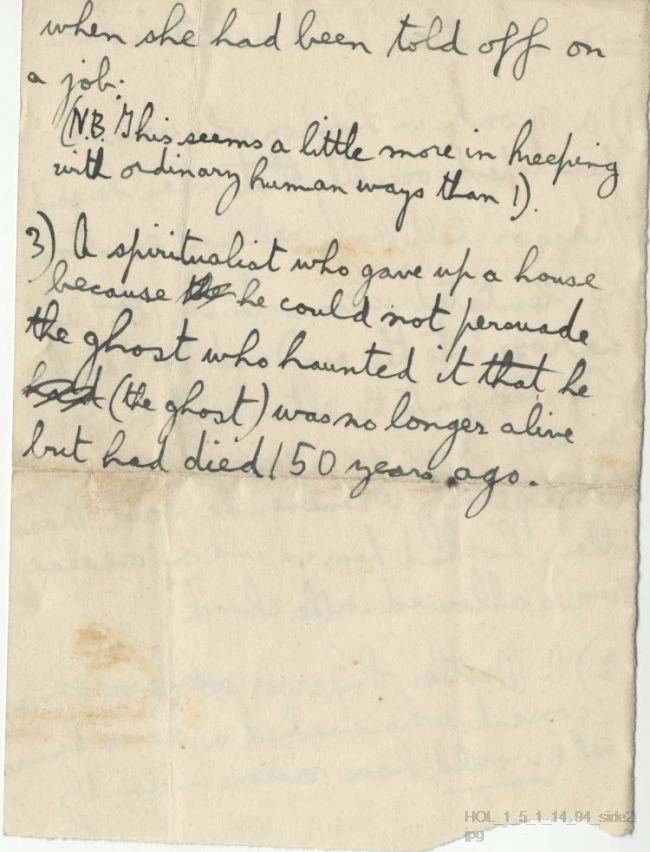 when she had been told off on
a job.
(N.B. This seems a little more in keeping
with ordinary human ways than 1).
3) A spiritualist who gave up a house
because the he could not persuade
the ghost who haunted it that he
(the ghost) was no longer alive
but had died 150 years ago.
HOL_1_5_1_14_94_side2
jpg